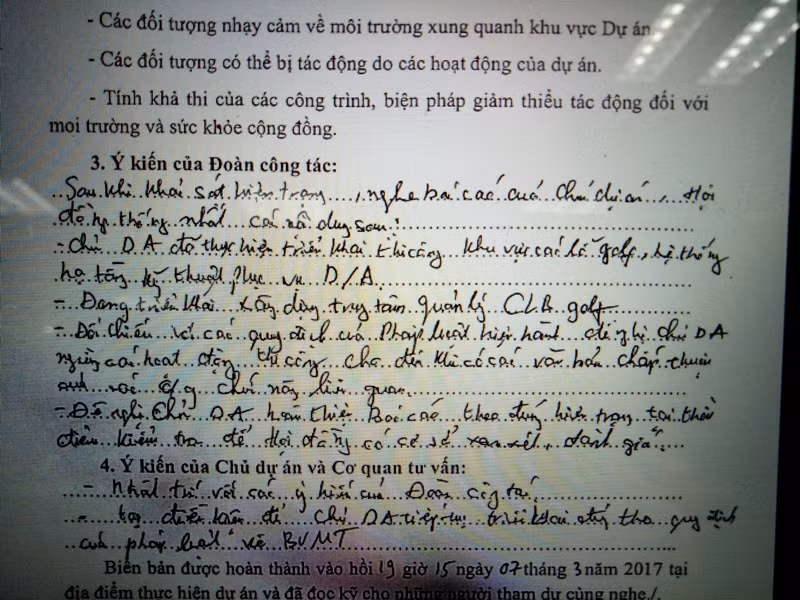 - Các đối tượng nhạy cảm về môi trường xung quanh khu vực Dự án
- Các đối tượng có thể bị tác động do các hoạt động của dự án.
- Tính khả thi của các công trình, biện pháp giảm thiểu tác động đối với
mọi trường và sức khỏe cộng đồng.
3. Ý kiến của Đoàn công tác:
Sau khi khảo sát hiện trạng, nghe báo cáo của chủ dự án, Hội
đồng thống nhất các nội dung sau:
- Chủ DA đã thực hiện triển khai thi công khu vực các lỗ golf, hệ thống
hạ tầng kỹ thuật phục vụ D/A.
- Đang triển khai xây dựng trung tâm quản lý CLB golf
- Đối chiếu với các quy định của Pháp luật hiện hành đề nghị chủ DA
ngừng các hoạt động thi công cho đến khi có các văn bản chấp thuận
của chức năng liên quan.
- Đề nghị Chủ DA hoàn thiện Báo cáo theo đúng hiện trạng tại thời
điểm kiểm tra để Hội đồng có cơ sở xem xét, đánh giá
4. Ý kiến của Chủ dự án và Cơ quan tư vấn:
- Nhất trí với các ý kiến của Đoàn công tác.
- tạo điều kiện để Chủ DA tiếp tục triển khai đúng theo quy định
của pháp luật về BVMT
Biên bản được hoàn thành vào hồi 19 giờ 15 ngày 07 tháng 3 năm 2017 tại
địa điểm thực hiện dự án và đã đọc kỹ cho những người tham dự cùng nghe./.